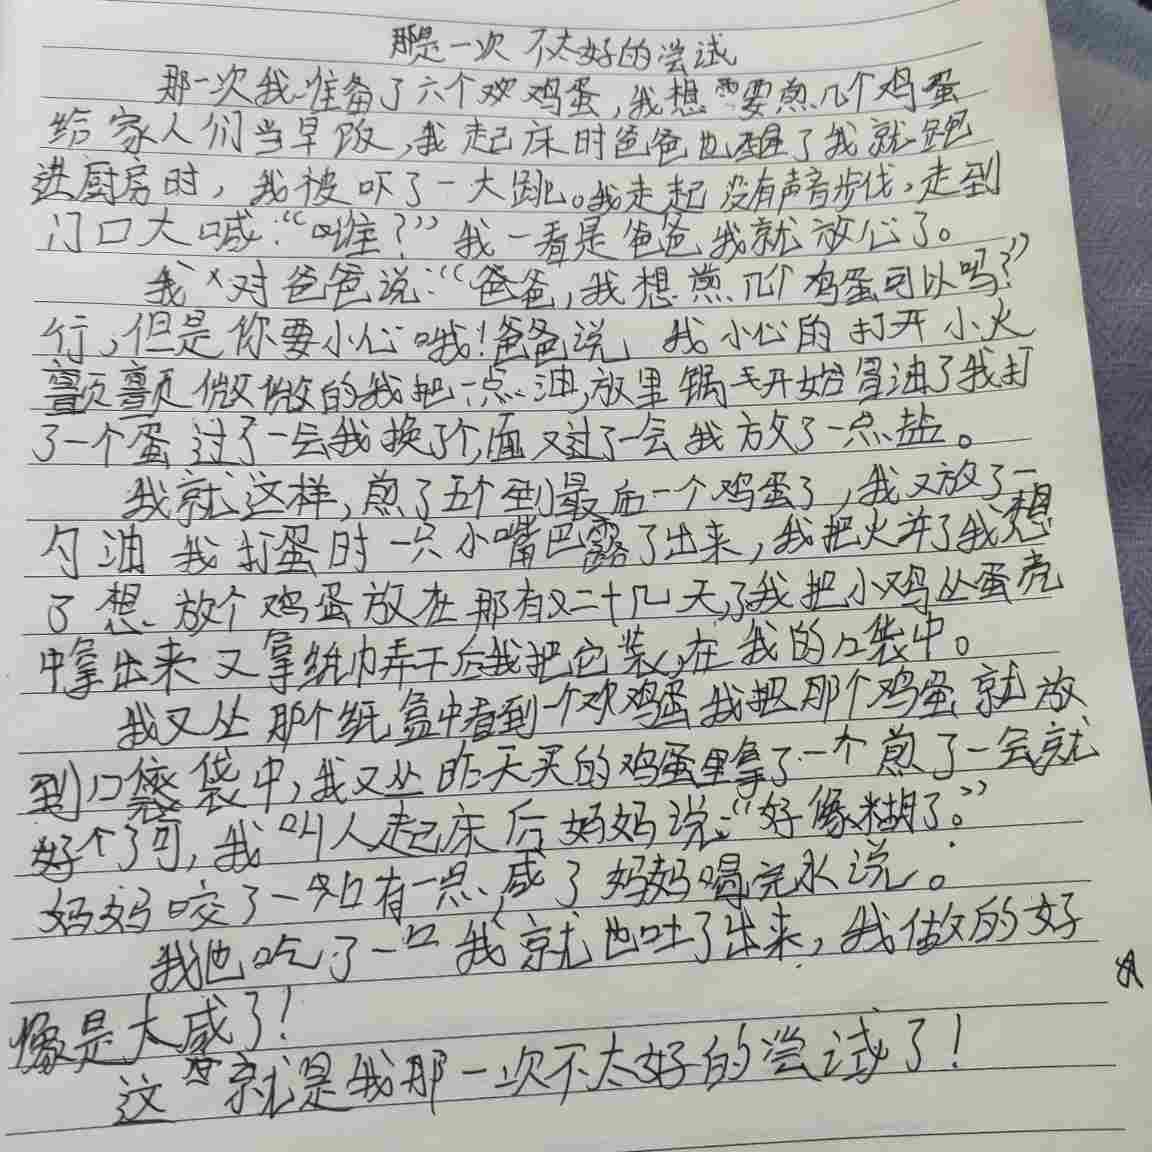 那是一次不太好的尝试
那一次我准备了六个鸡蛋,我想要煎几个鸡蛋
给家人们当早饭,我起床时爸爸也醒了我就跑
进厨房时,我被吓了一大跳。我走起没有声音步伐,走到
门口大喊:“谁?”我一看是爸爸我就放心了。
我对爸爸说:“爸爸,我想煎几个鸡蛋可以吗?”
行,但是你要小心哦!爸爸说 我小心的打开小火
颤颤微微的我把一点油,放里锅 开始冒油了我打
了一个蛋过了一会我换了个面又过了一会我放了一点盐。
我就这样,煎了五个到最后一个鸡蛋了,我又放了一
勺油 我打蛋时一只小嘴巴露了出来,我把火关了我想
了想 放个鸡蛋放在那有二十几天了我把小鸡从蛋壳
中拿出来又拿纸巾弄干后我把它装在我的口袋中。
我又从那个纸盒中看到一个鸡蛋我把那个鸡蛋就放
到口袋中,我又从昨天买的鸡蛋里拿了一个煎了一会就
好个了,我叫人起床后妈妈说:“好像糊了。”
妈妈咬了一口有一点咸了妈妈喝完水说。
我也吃了一口我就也吐了出来,我做的好
像是太咸了!
这就是我那一次不太好的尝试了!